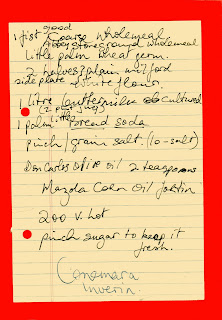 good
1 fist Coarse wholemeal
Abbey Stoneground wholemeal
little palm wheat germ.
2 halves plain milford
side plate white flour.
1 litre buttermilk cultured
(2 pint)
little
1 palm bread soda
pinch/grain salt. (lo-salt)
Don Carlos Olive oil 2 teaspoons
Mazola Corn oil for tin
200 v. hot
pinch sugar to keep it
fresh.
Conamara
Inverin.